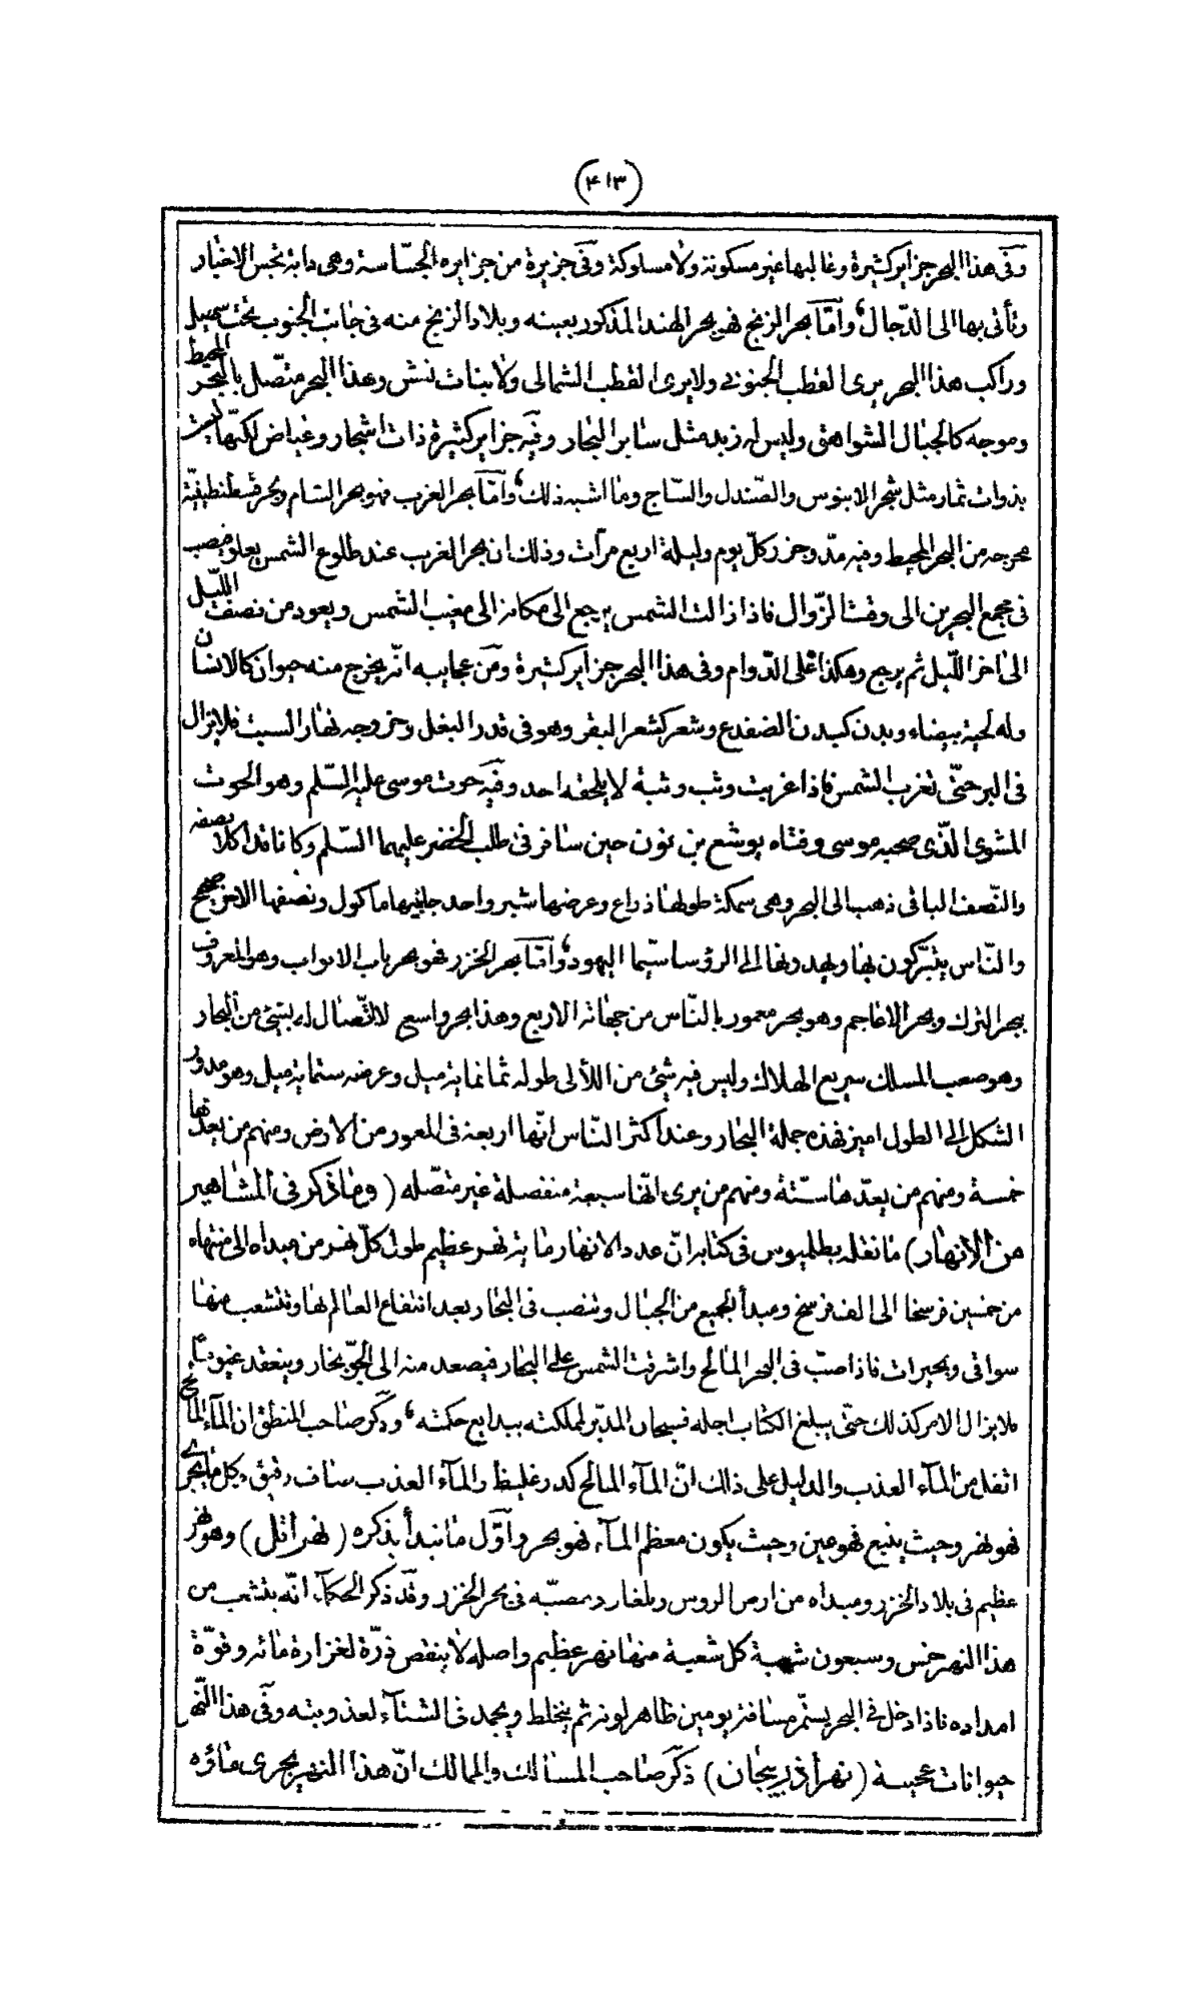 (۴۱۳)
وفى هذا البحر جزاير كثيرة وغالبها غير مسكونة ولا مسلوكة وفى جزيرة من جزايره الجسّاسة وهى دابة تجس الاخبار
وتأتى بها الى الدّجال وامّا بحر الزنج فهو بحر الهند المذكور بعينه وبلاد الزنج منه فى جانب الجنوب تحت سهيل
وراكب هذا البحر يرى القطب الجنوبى ولا يرى القطب الشمالى ولا بنات نعش وهذا البحر متّصل بالبحر المحيط
وموجه كالجبال الشواهق وليس له زبد مثل ساير البحار وفيه جزاير كثيرة ذات اشجار وغياض لكنّها ليست
بذوات ثمار مثل شجر الابنوس والصّندل والسّاج وما اشبه ذلك وامّا بحر الغرب فهو بحر الشام وبحر قسطنطينيّة
مخرجه من البحر المحيط وفيه مدّ وجزر كلّ يوم وليلة اربع مرّات وذلك ان بحر الغرب عند طلوع الشمس يعلو فيصب
فى مجمع البحرين الى وقت الزّوال فاذا زالت الشمس يرجع الى مكانه الى مغيب الشمس ويعود من نصف اللّيل
الى اخر اللّيل ثم يرجع وهكذا على الدّوام وفى هذا البحر جزاير كثيرة ومن عجايبه انّه يخرج منه حيوان كالانسان
وله لحية بيضاء وبدن كبدن الضفدع وشعر كشعر البقر وهو فى قدر البغل وخروجه نهار السبت فلا يزال
فى البر حتّى تغرب الشمس فاذا غربت وثب وثبة لا يلحقه احد وفيه حوت موسى عليه السّلم وهو الحوت
المشوى الذّى صحبه موسى وفتاه يوشع بن نون حين سافر فى طلب الخضر عليهما السّلم وكانا قد اكلا نصفه
والنّصف الباقى ذهب الى البحر وهى سمكة طولها ذراع وعرضها شبر واحد جانبيها ماكول ونصفها الاخر صحيح
والنّاس يتبرّكون بها ويهدونها الى الرؤسا سيّما اليهود وامّا بحر الخزر فهو بحر باب الابواب وهو المعروف
ببحر الترك وبحر الاعاجم وهو بحر معمور بالنّاس من جهاته الاربع وهذا بحر واسع لا اتّصال له بشئ من البحار
وهو صعب المسلك سريع الهلاك وليس فيه شئ من اللألى طوله ثمانماية ميل وعرضه ستماية ميل وهو مدوّر
الشكل الى الطول اميز فهذه جملة البحار وعند اكثر النّاس انّها اربعة فى المعمور من الارض ومنهم من يعدّها
خمسة ومنهم من يعدّها ستّة ومنهم من يرى انّها سبعة منفصلة غير متصّله (وما ذكر فى المشاهير
من الانهار) ما نقله بطلميوس فى كتابه انّ عدد الانهار مايه نهر عظيم طول كلّ نهر من مبداه الى منتهاه
من خمسين فرسخا الى الف فرسخ ومبدأ الجميع من الجبال وتنصب فى البحار بعد انتفاع العالم بها وتتشعب منها
سواقى وبحيرات فاذا صبّ فى البحر المالح واشرقت الشمس على البحار فيصعد منه الى الجوّ بخار وينعقد غيوما
فلا يزال الامر كذلك حتّى يبلغ الكتاب اجله فسبحان المدبّر لمملكته ببدايع حكمته وذكر صاحب المنطق ان المآء المالح
اثقل من المآء العذب والدليل على ذلك انّ المآء المالح كدر غليظ والمآء العذب صاف رقيق وكل ما يجرى
فهو نهر وحيث ينبع فهو عين وحيث يكون معظم المآء فهو بحر واوّل ما نبدأ بذكره (نهر أتل) وهو نهر
عظيم فى بلاد الخزر ومبداه من ارض الروس وبلغار ومصبّه فى بحر الخزر وقد ذكر الحكمآء انّه يتشعب من
هذا النهر خمس وسبعون شعبة كل شعبة منها نهر عظيم واصله لا ينقص ذرّة لغزارة مائه وقوّة
امداده فاذا دخل فى البحر يستمّر مسافة يومين ظاهر لونه ثم يختلط ويجمد فى الشتآء لعذوبته وفى هذا النّهر
حيوانات عجيبة (نهر أذربيجان) ذكر صاحب المسالك والممالك انّ هذا النهر يجرى ماؤه